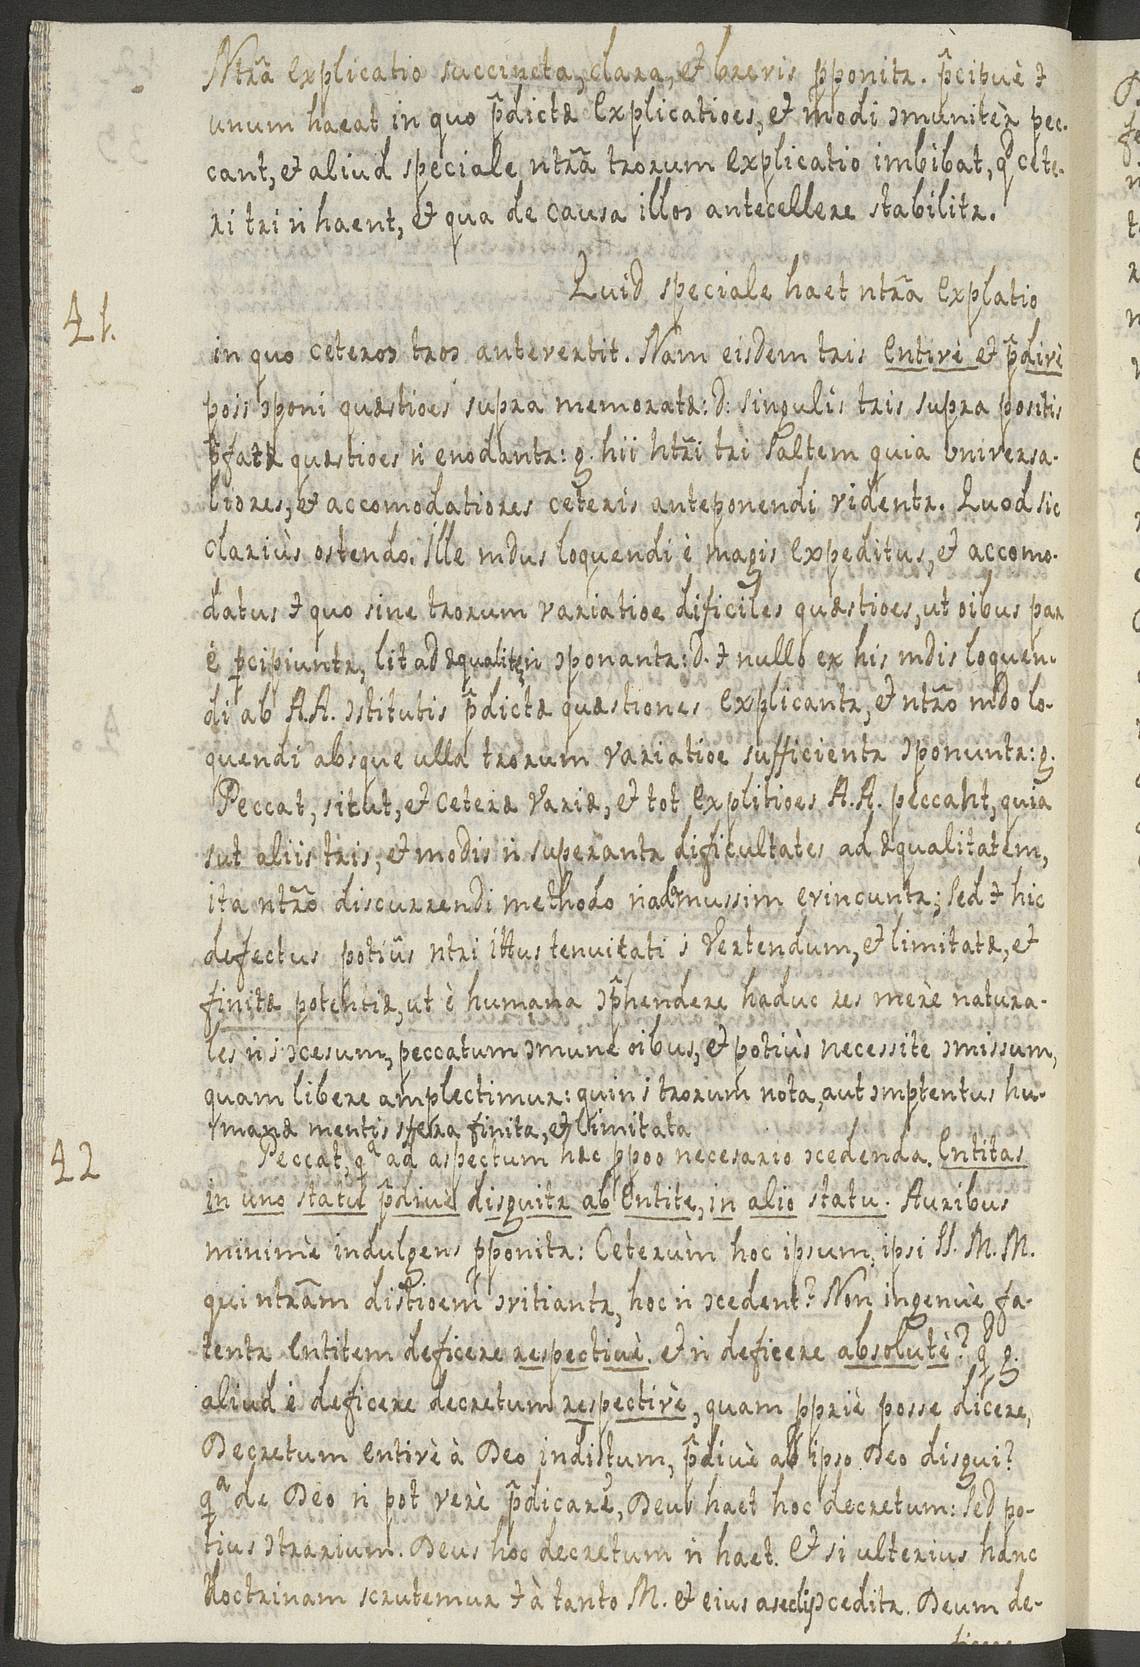 Ntrã explicatio succincta, clara, et brevis pponitr. p̃cipuè ɫ
unum haeat in quo p̃dictæ explicatioes, et modi ɔmunitèr pec-
cant, et aliud speciale ntrã trorum explicatio imbibat, qᵈ cete-
ri tri ñ haent, et qua de causa illos antecellere stabilitr.
Quid speciale haet ntrã explatio
41. in quo ceteros tros antevertit. Nam eisdem tris entivè et p̃divè
poss ɔponi quæstioes supra memoratæ: d: singulis tris supra positis
p̃fatæ quæstioes ñ enodantr: g. hii ntr̃i tri saltem quia universa-
liores, et accomodatiores ceteris anteponendi videntr. Quod sic
clariùs ostendo. Ille mdus loquendi ê magis expeditus, et accomo-
datus ɫ quo sine trorum variatioe dificiles quæstioes, ut oibus par
ê pcipiuntr, lit adæqualitèr ñ ɔponantr: d. ɫ nullo ex his mdis loquen-
di ab A.A. ɔstitutis p̃dictæ quæstiones explicantr, et ntrõ mdo lo-
quendi absque ulla trorum variatioe sufficientr ɔponuntr: g.
Peccat, situt, et ceteræ variæ, et tot explitioes A.A. peccant, quia
sut aliis tris, et modis ñ superantr dificultates ad æqualitatem,
ita ntrõ discurrendi methodo ñ admussim evincuntr; sed ɫ hic
defectus potiùs ntri ittus tenuitati s vertendum, et limitatæ, et
finitæ potentiæ, ut ê humana ɔp̃hendere haduc res merè natura-
les ñ s ɔcesum, peccatum ɔmune oibus, et potiùs necessite ɔmissum,
quam libere amplectimur: quin s trorum nota, aut ɔmptentus hu-
manæ mentis sfera finita, et limitata
42 Peccat, qᵃ ad aspectum hæc ppoo necesario ɔcedenda. Entitas
in uno statu p̃divè disguitr ab entite, in alio statu. Auribus
minimè indulgens pponitr: Ceterùm hoc ipsum, ipsi SS. M.M.
qui ntrãm distioem ɔvitiantr, hoc ñ ɔcedent? Non ingenuè fa-
tentr entitem deficere respectivè, et ñ deficere absolutè? qᵈ g.
aliud ê deficere decretum respectivè, quam ppriè posse dicere,
Decretum entivè à Deo indistum, p̃divè ab ipso Deo disgui?
qᵃ de Deo ñ pot verè p̃dicare, Deus haet hoc decretum: sed po-
tius ɔtrarium. Deus hoc decretum ñ haet. Et si ulterius hanc
doctrinam scrutemur ɫ à tanto M. et eius aseclis ɔceditr. Deum de-